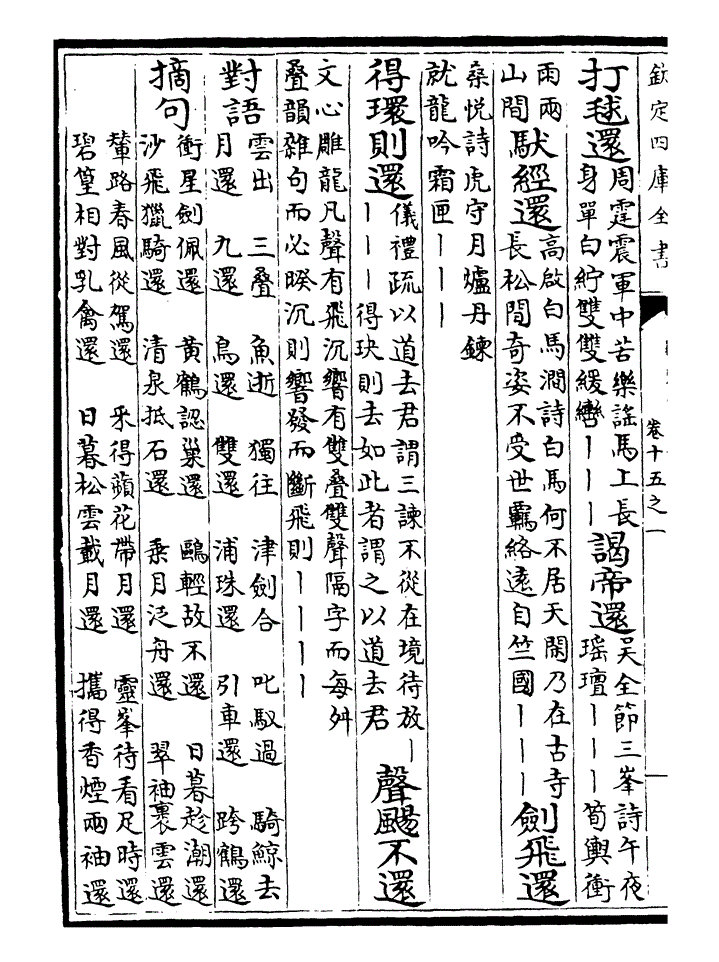 欽定四庫全書
卷十五之一
打毬還
周霆震軍中苦樂謠馬上長
身單白紵雙雙緩轡丨丨丨
謁帝還
吳全節三峯詩午夜
瑤壇丨丨丨筍輿衝
雨兩
山間
馱經還
高啟白馬澗詩白馬何不居天閑乃在古寺
長松間奇姿不受世覊絡遠自竺國丨丨丨
劍飛還
桑悅詩虎守月爐丹鍊
就龍吟霜匣丨丨丨
得環則還
儀禮疏以道去君謂三諫不從在境待放丨
丨丨丨得玦則去如此者謂之以道去君
聲颺不還
文心雕龍凡聲有飛沉響有雙叠雙聲隔字而每舛
叠韻雜句而必暌沉則響發而斷飛則丨丨丨丨
對語
雲出 三叠 魚逝 獨往 津劍合 叱馭過 騎鯨去
月還 九還 鳥還 雙還 浦珠還 引車還 跨鶴還
摘句
衝星劍佩還 黃鶴認巢還 鷗輕故不還 日暮趁潮還
沙飛獵騎還 清泉抵石還 乘月泛舟還 翠袖裹雲還
輦路春風從駕還 釆得蘋花帶月還 靈峯待看足時還
碧篁相對乳禽還 日暮松雲戴月還 攜得香煙兩袖還